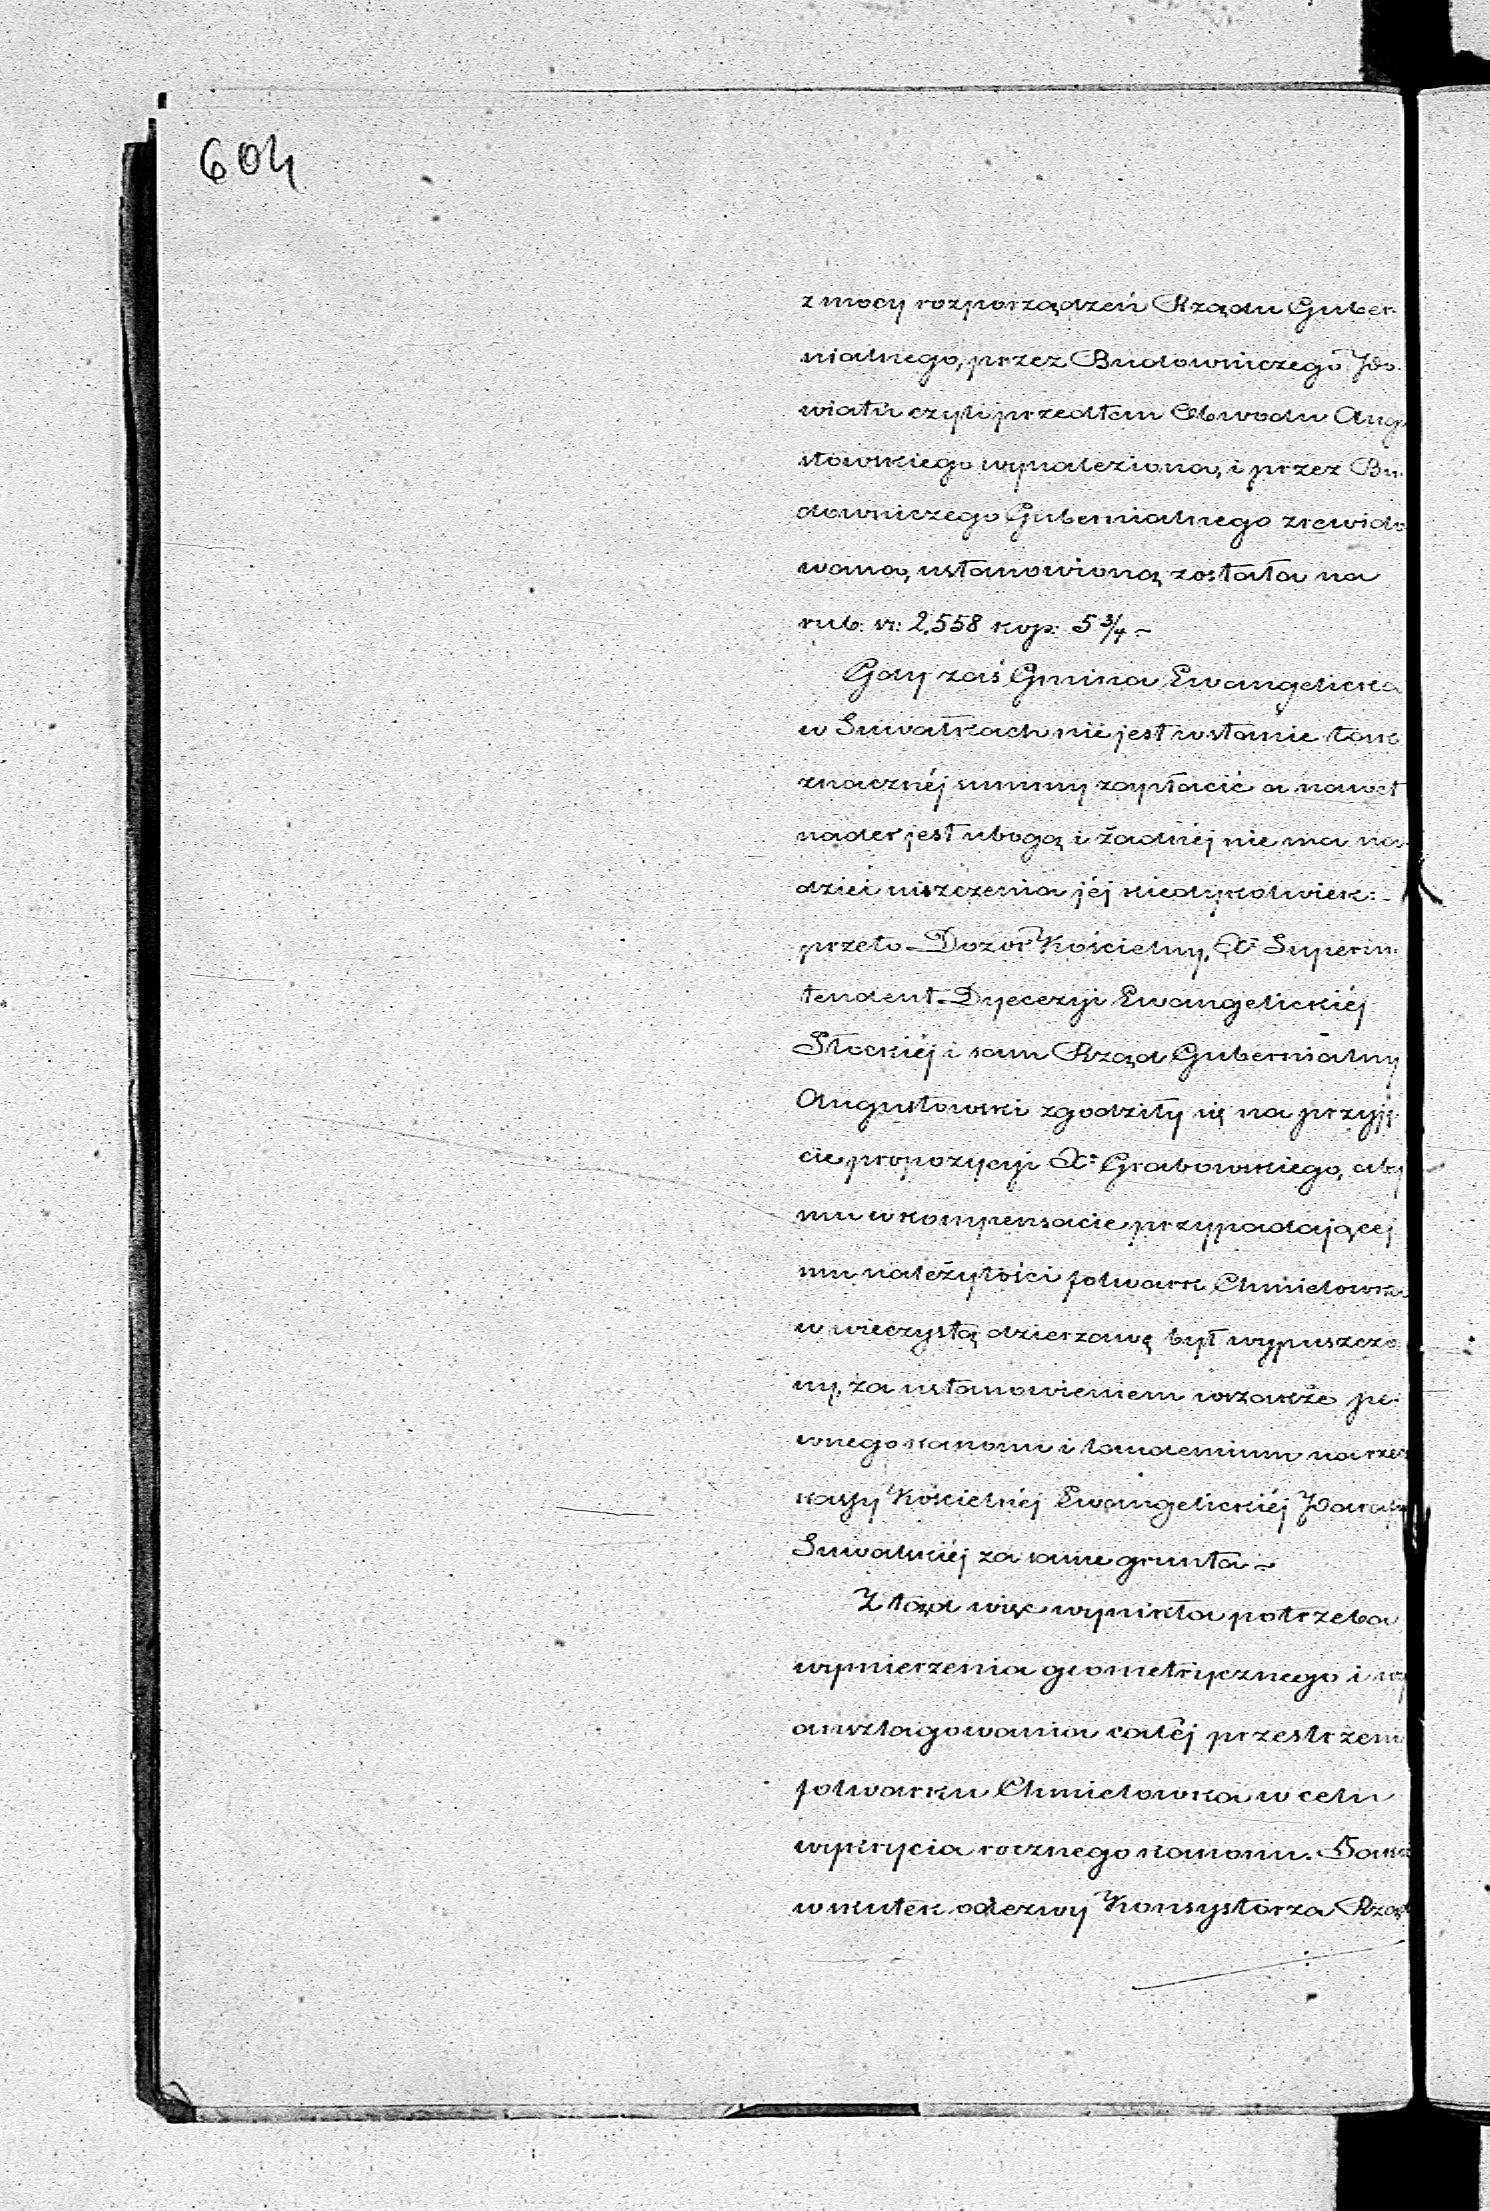 604
z mocy rozporządzeń Rządu Guber-
nialnego, przez Budowniczego Po-
wiatu czyli przedtem Obwodu Aug
stowskiego wynaleziona, i przez Bu-
downiczego Gubernialnego zrewido
wana, ustanowioną została na
rub: sr: 2,558 kop: 5 3/4 ~
Gdy zaś Gmina Ewangelicka
w Suwałkach nie jest w stanie tak
znacznéj summy zapłacić a nawet
nader jest ubogą i żadnéj nie ma na-
dziei uiszczenia jéj kiedykolwiek: -
przeto Dozór Kościelny, X. Superin-
tendent Dyecezyi Ewangelickiéj
Płockiéj i sam Rząd Gubernialny
Augustowski zgodziły się na przyję-
cie propozycyi X. Grabowskiego, aby
mu w kompensacie przypadającéj
mu należytości folwark Chmielówka
w wieczystą dzierzawę był wypuszczo
ny, za ustanowieniem wszakże pe-
wnego kanonu i laudemium na rzecz
kassy Kościelnéj Ewangelickiéj Parafi
Suwalskiéj za same grunta ~
Z tąd więc wynikła potrzeba
wymierzenia geometrycznego i wy
anszlagowania całéj przestrzeni
folwarku Chmielówka w celu
wykrycia rocznego kanonu.
wskutek odezwy Konsystorza Rząd